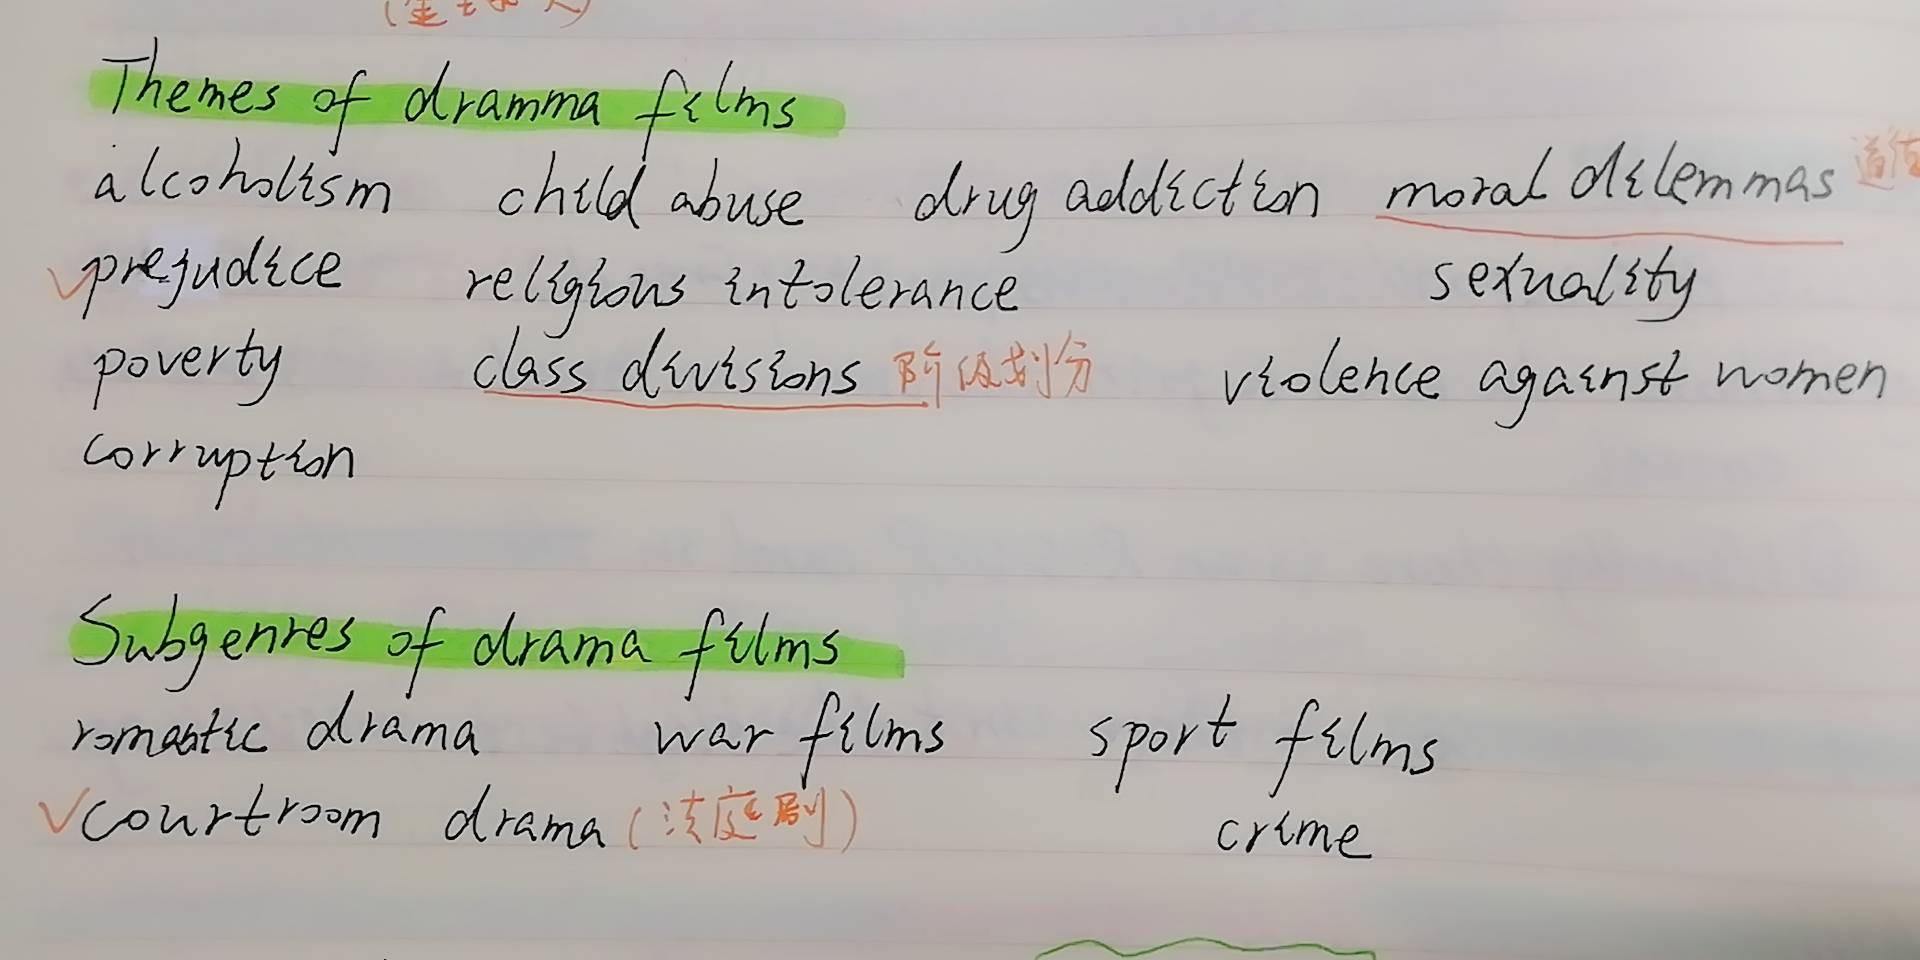 Themes of dramma films
alcoholism child abuse drug addiction moral dilemmas 道德
prejudice religious intolerance sexuality
poverty class divisions 阶级划分 violence against women
corruption
Subgenres of drama films
romantic drama war films sport films
courtroom drama (法庭剧) crime